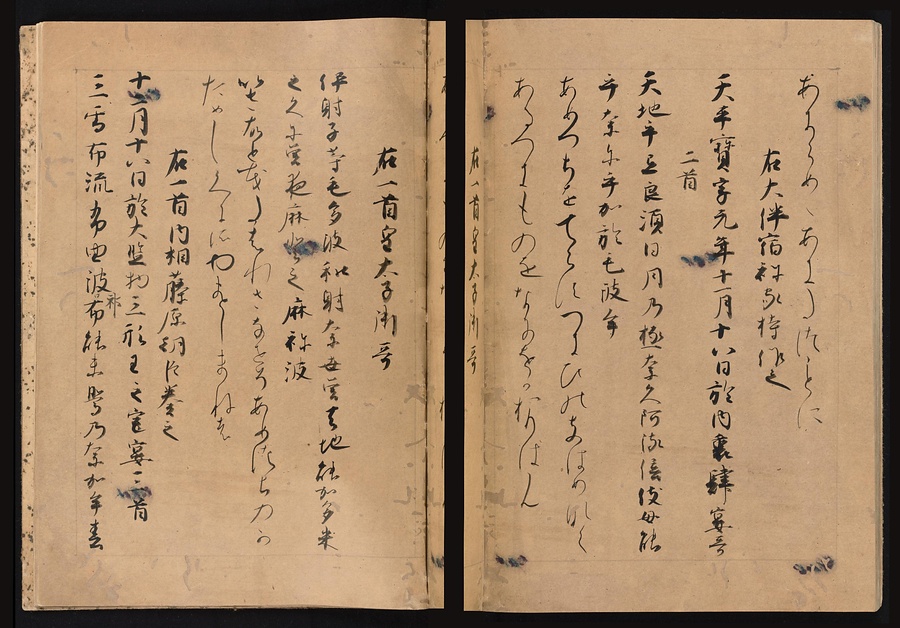 あきらめゝあきたつことに
右大伴宿祢家持作之
天平寶字元年十一月十八日於内裏肆宴哥
二首
天地乎弖良須日月乃極奈久阿流倍伎母能
乎奈尓乎加於毛波牟
あめつちをてらすつきひのきはめなく
あるへきものをなにをかおもはん
右一首皇太子御哥
伊射子等毛多波和射奈世曾天地能加多米
之久尓曾夜麻登之麻祢波
いさこともたはわさなせそあめつちのか
ためしくにそやまとしまねは
右一首内相藤原朝臣奏之
十二月十八日於大監物三形王之宅宴三首
三雪布流布由波祁布能未鸎乃奈加牟春